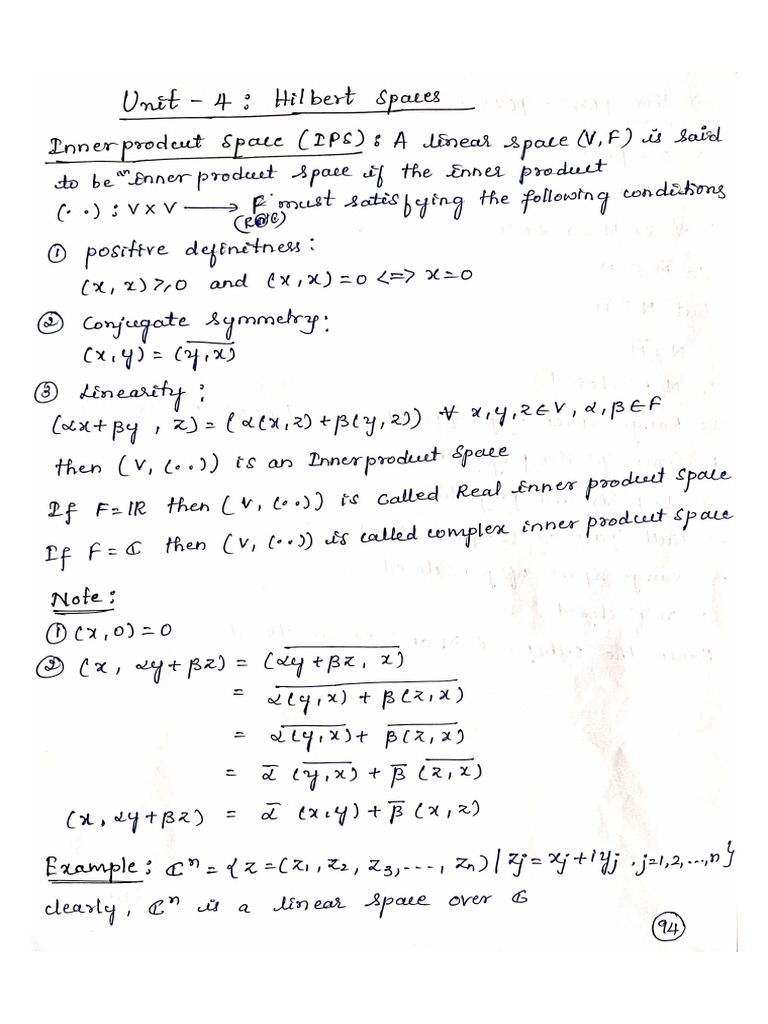 Unit - 4 : Hilbert Spaces
Inner product Space (IPS) : A linear space (V, F) is said
to be an inner product space if the inner product
(· ·) : V × V ⟶ F must satisfying the following conditions
(R or C)
① positive definitness :
(x, x) ≥ 0 and (x, x) = 0 <=> x = 0
② Conjugate Symmetry :
(x, y) = \overline{(y, x)}
③ Linearity :
(αx + βy , z) = (α(x, z) + β(y, z)) ∀ x, y, z ∈ V, α, β ∈ F
then (V, (· ·)) is an Inner product Space.
If F = ℝ then (V, (· ·)) is called Real inner product space
If F = ℂ then (V, (· ·)) is called complex inner product space
Note :
① (x, 0) = 0
② (x, αy + βz) = \overline{(αy + βz, x)}
= \overline{α(y, x) + β(z, x)}
= \overline{α(y, x)} + \overline{β(z, x)}
= \overline{α} \overline{(y, x)} + \overline{β} \overline{(z, x)}
(x, αy + βz) = \overline{α} (x, y) + \overline{β} (x, z)
Example : ℂⁿ = {z = (z₁, z₂, z₃, ---, zₙ) / zⱼ = xⱼ + iyⱼ , j = 1, 2, ..., n}
clearly, ℂⁿ is a linear space over ℂ
94